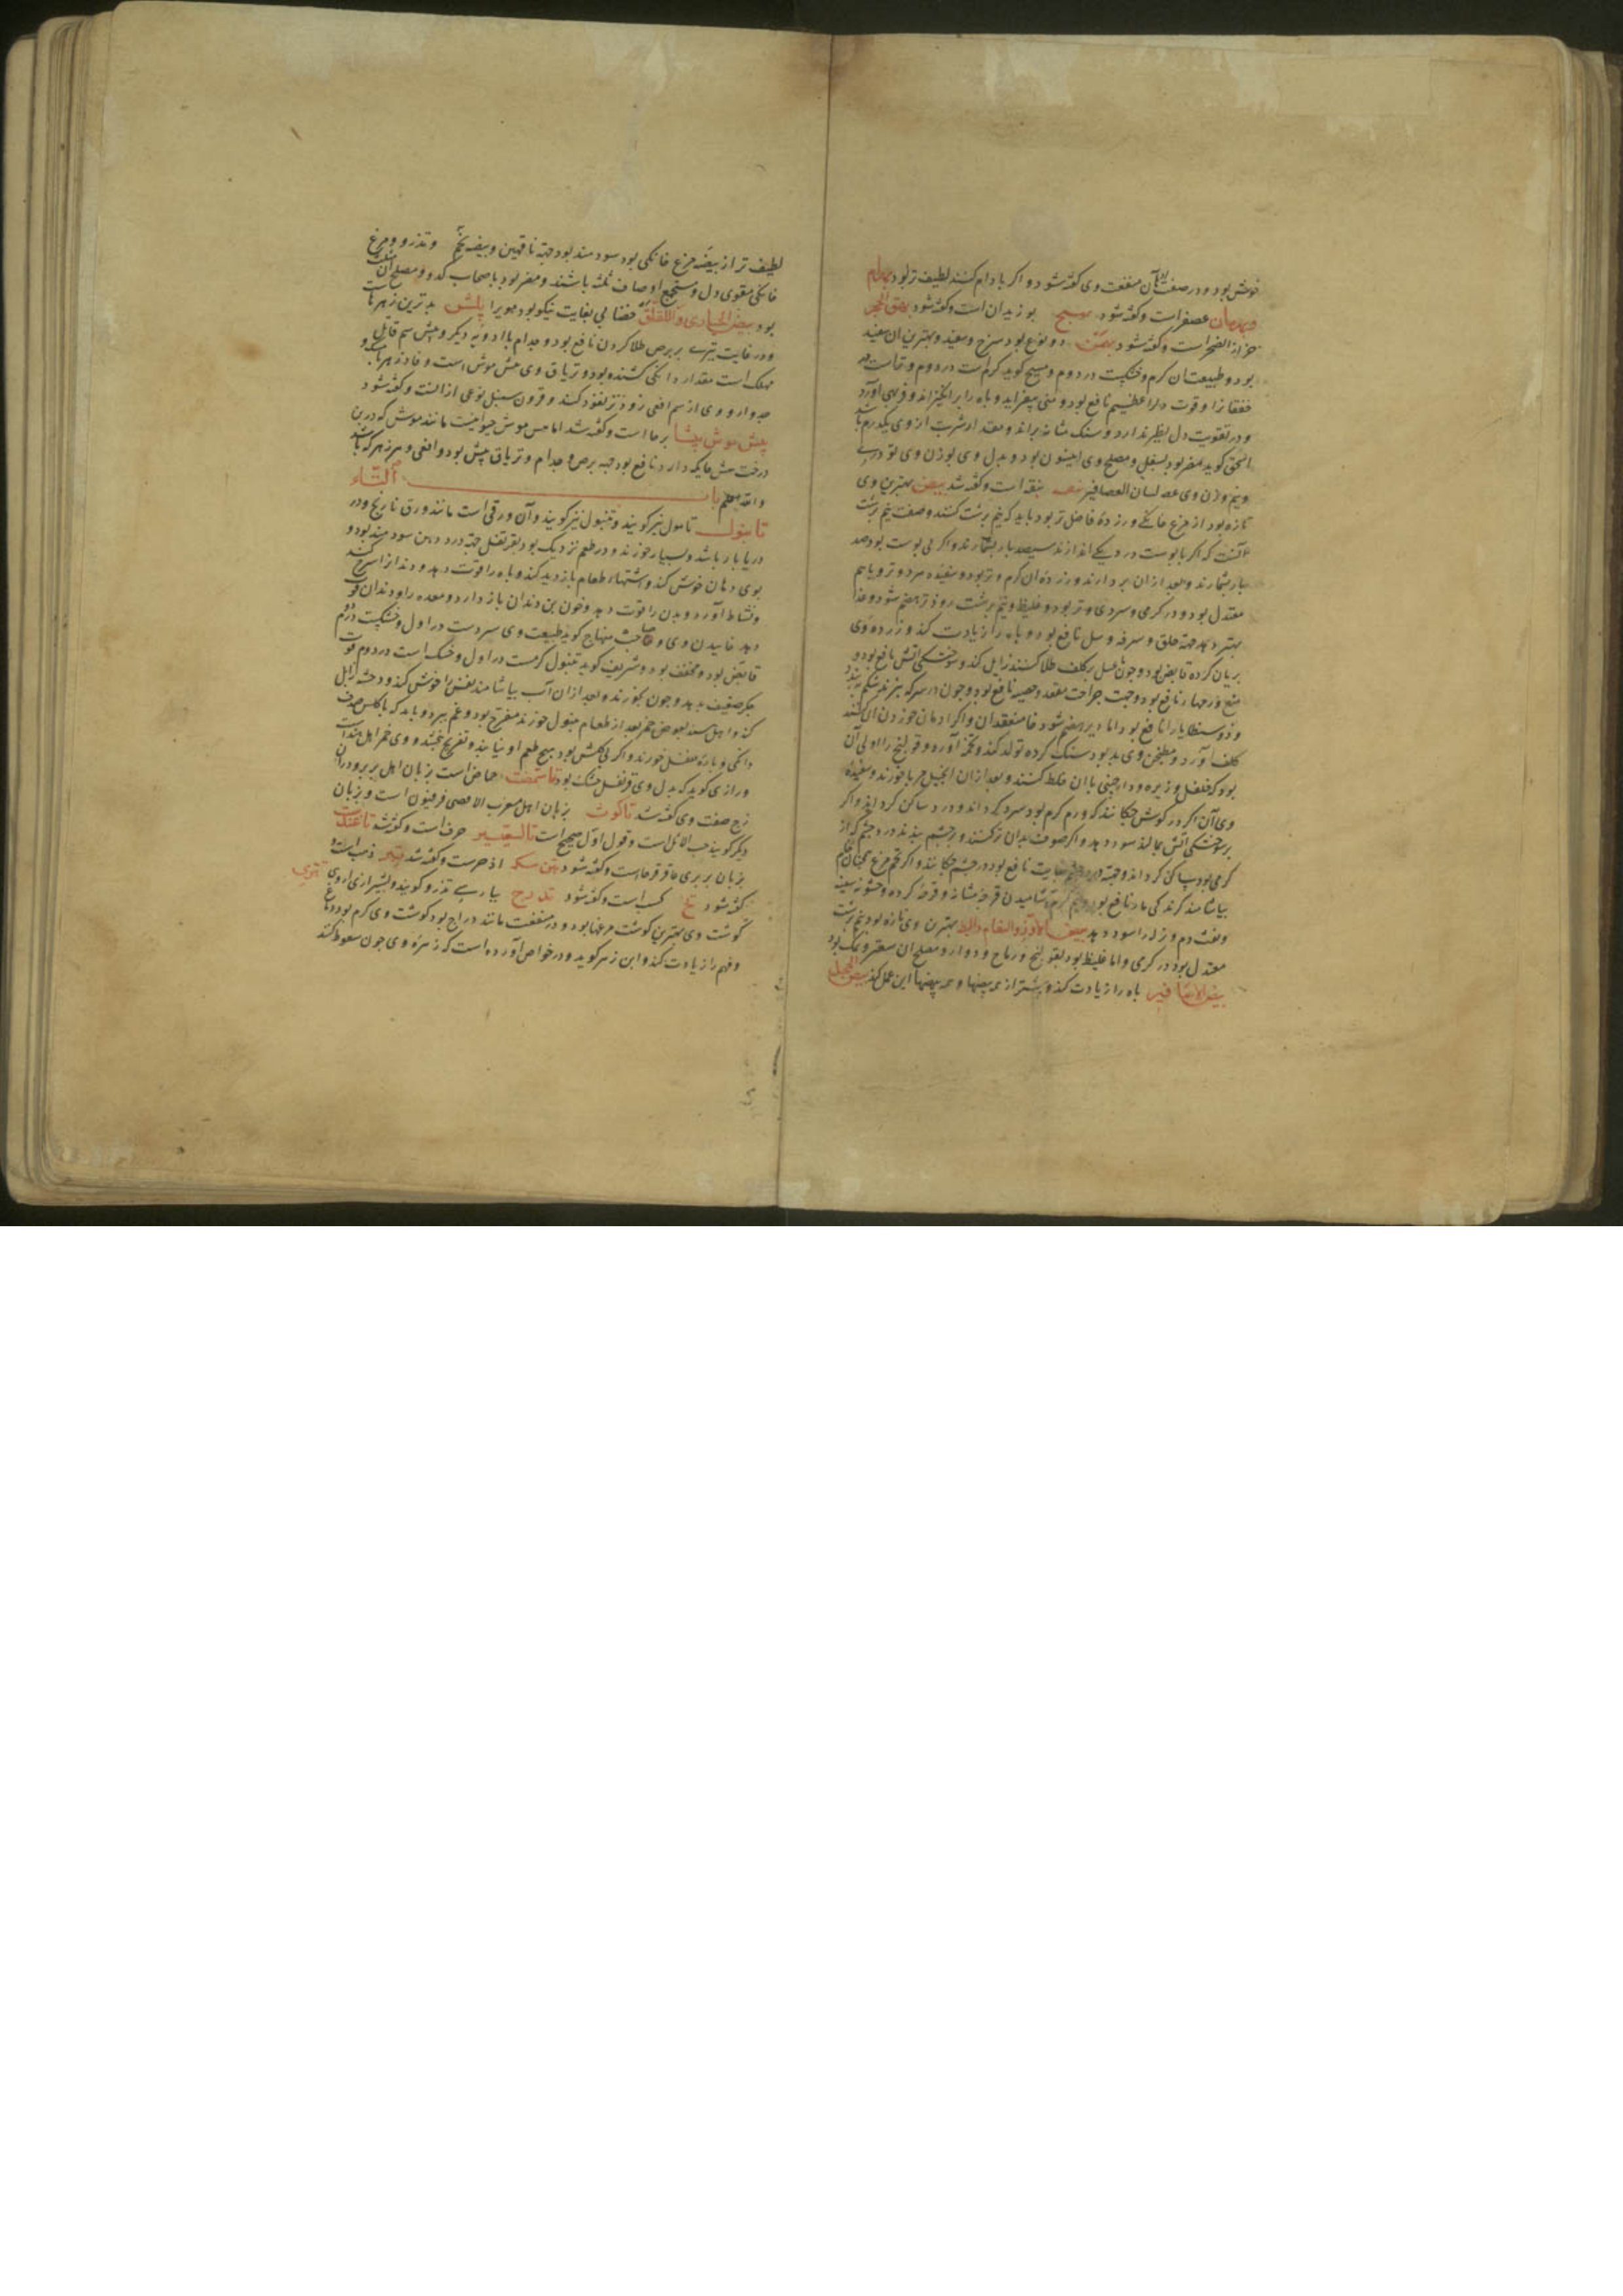 خوش بود و در صفت آن منفعت وی گفته شود و اگر بادام کنند لطیف تر بود بهرام
وبهرمان عصفر است و گفته شود بهیج بوزیدان است و گفته شود بهق الحجر
حزاز الصخر است و گفته شود بهمن دو نوع بود سرخ و سفید و بهترین آن سفید
بود و طبیعت آن گرم و خشکست در دوم و مسیح گوید گرم ست در دوم
خفقان را و قوت دل را عظیم نافع بود و منی بیفزاید و باه را برانگیزاند و فربهی آورد
و در تقویت دل نظیر ندارد و سنک مثانه براند و مقدار شربت از وی یکدرم باشد
اسحق گوید مضر بود بسفل و مصلح وی انیسون بود و بدل وی بوزن وی تودری
و نیم وزن وی لسان العصافیر بنقه است و گفته شد بیض بهترین وی
تازه بود از مرغ خانکی و زرده فاضل تر بود باید که نیم برشت کنند و صفت نیم برشت
آنست که اگر با پوست در دیک اندازند سیصد بار بشمارند و اگر بی پوست بود صد
بار بشمارند و بعد ازان بردارند و زرده آن گرم و تر بود و سفیده سرد و تر و با هم
معتدل بود در گرمی و سردی و تر بود و غلیظ و نیم برشت زودتر هضم شود و غذا
بهتر دهد جهة حلق و سرفه و سل نافع بود و باه را زیادت کند و زرده وی
بریان کرده قابض بود و چون با عسل بر کلف طلا کنند زایل کند و سوختگی آتش نافع بود و
منع ورمها را نافع بود و جهت جراحت مقعد و خصیه نافع بود و چون در سرکه بپزند شکم ببندد
و ذوسنطاریا را نافع بود اما دیر هضم شود خاصه منعقد آن و اگر ادمان خوردن آن کنند
کلف آورد و مطجن وی بد بود سنک گرده تولد کند و تخمه آورد و قولنج را اولی آن
بود که فلفل و زیره و دارچینی با آن خلط کنند و بعد ازان انجبیل مربا خورند و سفیده
وی آن اگر در گوش چکانند که ورم گرم بود سرد گرداند و درد ساکن گرداند و اگر
بر سوختگی آتش بمالند سود دهد و اگر صوف بدان تر کنند و بر چشم بندند درد چشم که از
گرمی بود ساکن گرداند و جهة درد چشم بغایت نافع بود در چشم چکانند و اگر تخم مرغ همچنان خام
بیاشامند گزندگی مار نافع بود و نیم گرم آشامیدن قرحه مثانه و قرحه گرده و خشونة سینه
و نفث دم و نزله را سود دهد بیض الاوز و النعام و البط بهترین وی تازه بود نیم برشت
معتدل بود در گرمی و اما غلیظ بود بقولنج و ریاح و دوار و مصلح آن سعتر و نمک بود
بیض العصافیر باه را زیادت کند و بیشتر از همه بیضها و همه بیضها این عمل کند بیض الحجل
لطیف تر از بیضه مرغ خانکی بود سودمند بود جهة ناقهین و بیضه و تذرو و مرغ
خانکی مقوی دل و مستجمع اوصاف ثلثه باشند و مضر بود باصحاب کدو و مصلح آن نمک
بود بیض الحباری واللقلق خضابی بغایت نیکو بود مویرا بیش بدترین زهرهاست
و در غایت تیزی بر برص طلا کردن نافع بود و جدام با ادویه دیگر و بیش سم قاتل
مهلک است مقدار دانکی کشنده بود و تریاق وی بیش موش است و فادزهرها و
جدوار و وی از سم افعی زودتر نفوذ کند و قرون سنبل نوعی ازانست و گفته شود
بیش موش بیشا برما است و گفته شد اما بیش موش حیوانیست مانند موش که در بن
درخت بیش جایکه دارد نافع بود جهة برص و جدام و تریاق بیش بود و افعی و هر زهر که باشد
والله اعلم باب التاء
تانبول تامول نیز گویند و تنبول نیز گویند و آن ورقی است مانند ورق نارنج و در
دریا بار باشد و بسیار خورند و در طعم نزدیک بود بقرنفل جهة درد دهن سودمند بود و
بوی دهان خوش کند و اشتهاء طعام بازدید کند و باه را قوت دهد و دندانرا سرخ کند
و نشاط آورد و بدن را قوت دهد و خون بن دندان باز دارد و معده را و دندان قوت
دهد خاییدن وی و صاحب منهاج گوید طبیعت وی سردست در اول و خشکیست در دوم
قابض بود و مجفف بود و شریف گوید تنبول گرمست در اول و خشک است در دوم قوت
جگر ضعیف بدهد و چون بخورند و بعد ازان آب بیاشامند نفس را خوش کند و وحشت زایل
کند و اهل سند بعوض خمر بعد از طعام تنبول خورند مفرح بود و غم ببرد و باید که با کلس صدف
دانکی و پاره فلفل خورند و اگر بی کلس بود هیچ طعم او نیابند و تفریح نبخشد و وی خمر اهل هند است
و رازی گوید که بدل وی قرنفل خشک بود تاسمت حماض است بزبان اهل بربر و در ان
زج صفت وی گفته شد تاکوت بزبان اهل مغرب الاقصی فرفیون است و بزبان
دیگر گویند حب الاثل است و قول اول صحیح است تالیقسیر حرف است و گفته شد تاغندست
بزبان بربری عاقرقرحاست و گفته شود تبن مکه اذخرست و گفته شد تبر ذهب است و
گفته شود تخ کسب است و گفته شود تدرج بپارسی تذرو گویند و بشیرازی
گوشت وی بهترین گوشت مرغها بود و در منفعت مانند دراج بود گوشت وی گرم بود دماغ
و فهم را زیادت کند و ابن زهر گوید و در خواص آورده است که زهره وی چون سعوط کند